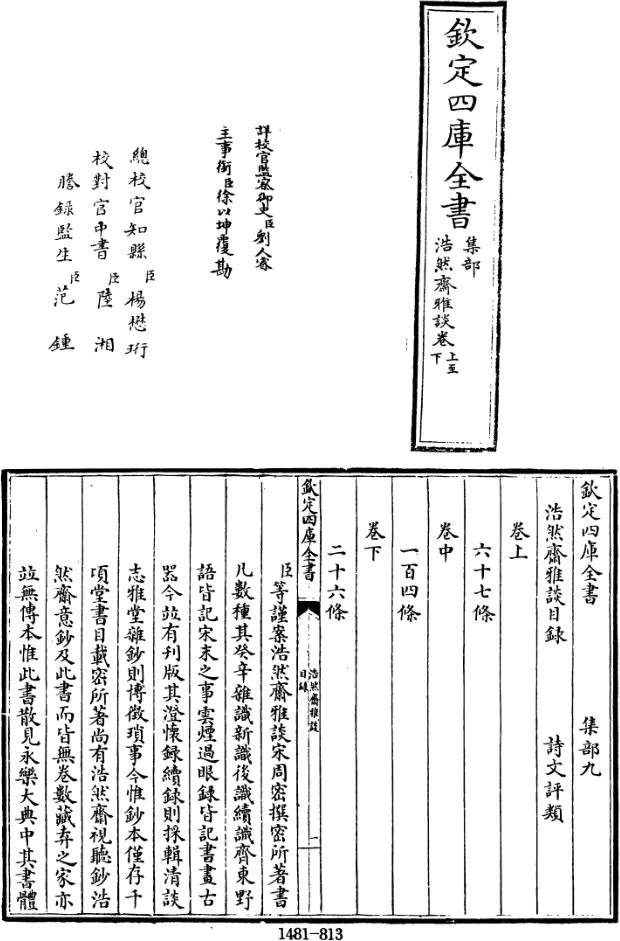 欽定四庫全書
集部
浩然齋雅談卷上至下
詳校官監察御史臣劉人睿
主事銜臣徐以坤覆勘
總校官知縣臣楊懋珩
校對官中書臣陸湘
謄錄監生臣范鍾
欽定四庫全書 集部九
浩然齋雅談目錄 詩文評類
卷上
六十七條
卷中
一百四條
卷下
二十六條
欽定四庫全書
浩然齋雅談
目錄
一
臣等謹案浩然齋雅談宋周密撰密所著書
凡數種其癸辛雜識新識後識續識齊東野
語皆記宋末之事雲煙過眼錄皆記書畫古
器今竝有刊版其澄懷録續録則採輯清談
志雅堂雜鈔則博徵瑣事今惟鈔本僅存千
頃堂書目載密所著尚有浩然齋視聽鈔浩
然齋意鈔及此書而皆無卷數藏弆之家亦
竝無傳本惟此書散見永樂大典中其書體
1481-813